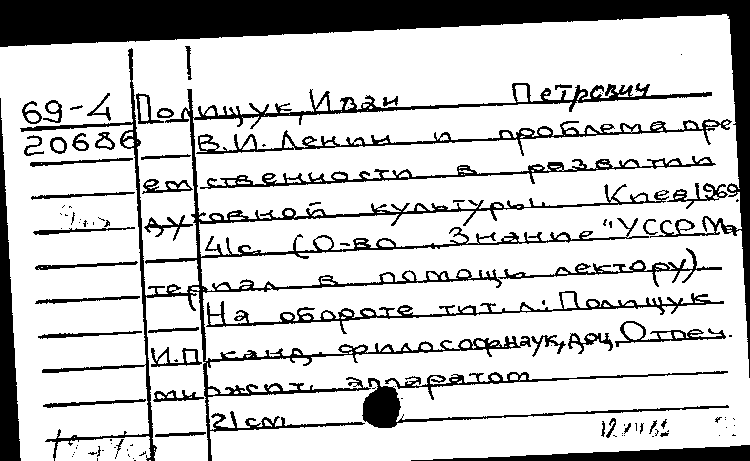 69-4 Полищук, Иван Петрович
20686 В.И. Ленин и проблема пре-
емственности в развитии
духовной культуры. Киев, 1969
41с. (О-во „Знание" УССР Ма-
териал в помощь лектору)
На обороте тит. л.: Полищук
И.П., канд. философ. наук, доц. Отпеч.
множит. аппаратом
21 см